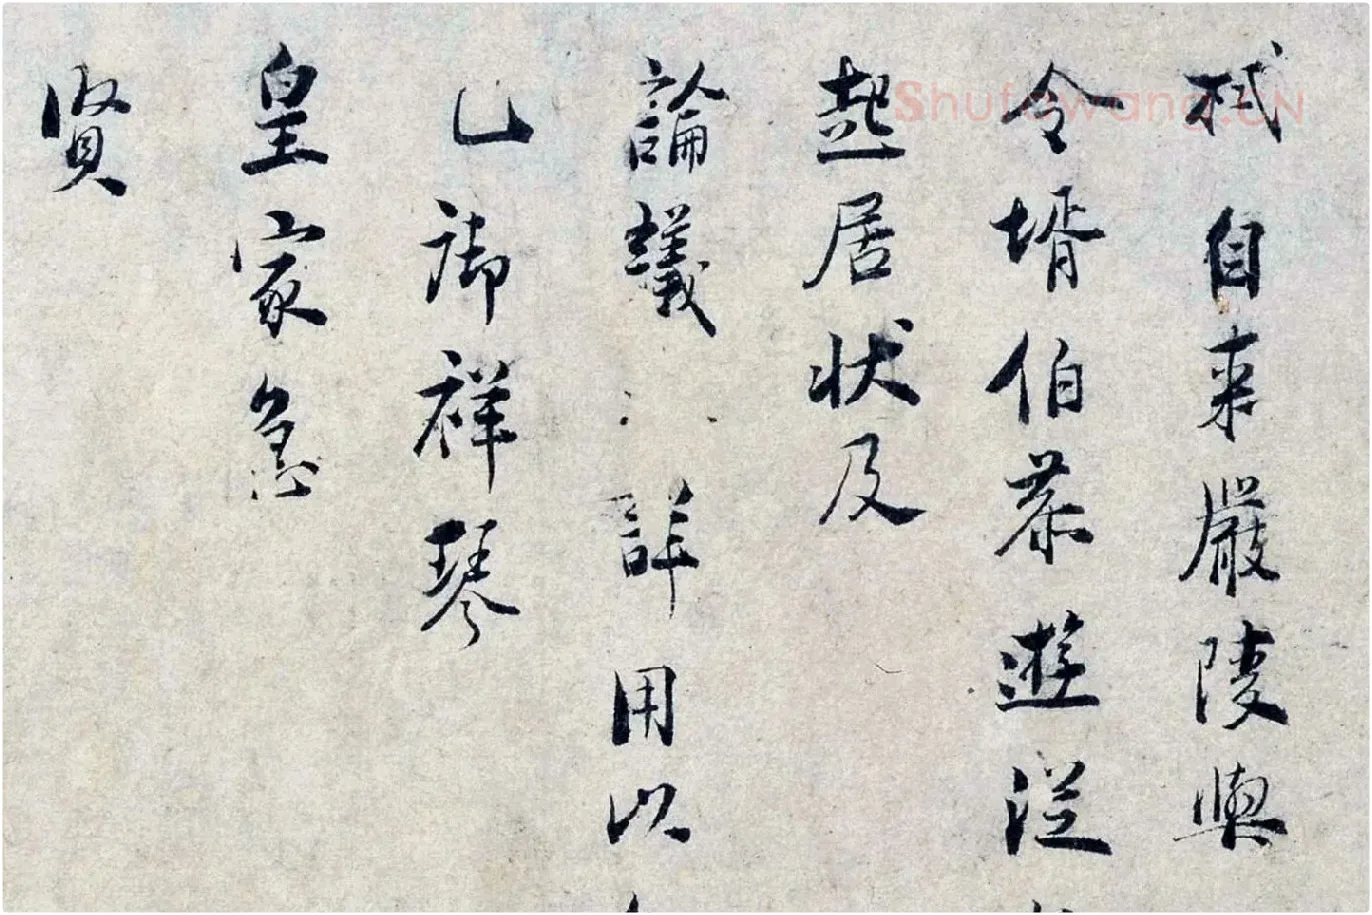 栻自來嚴陵與
令壻伯恭遊從
起居狀及
論議詳用以
已御祥琴
皇家急
賢
Shufawang.CN